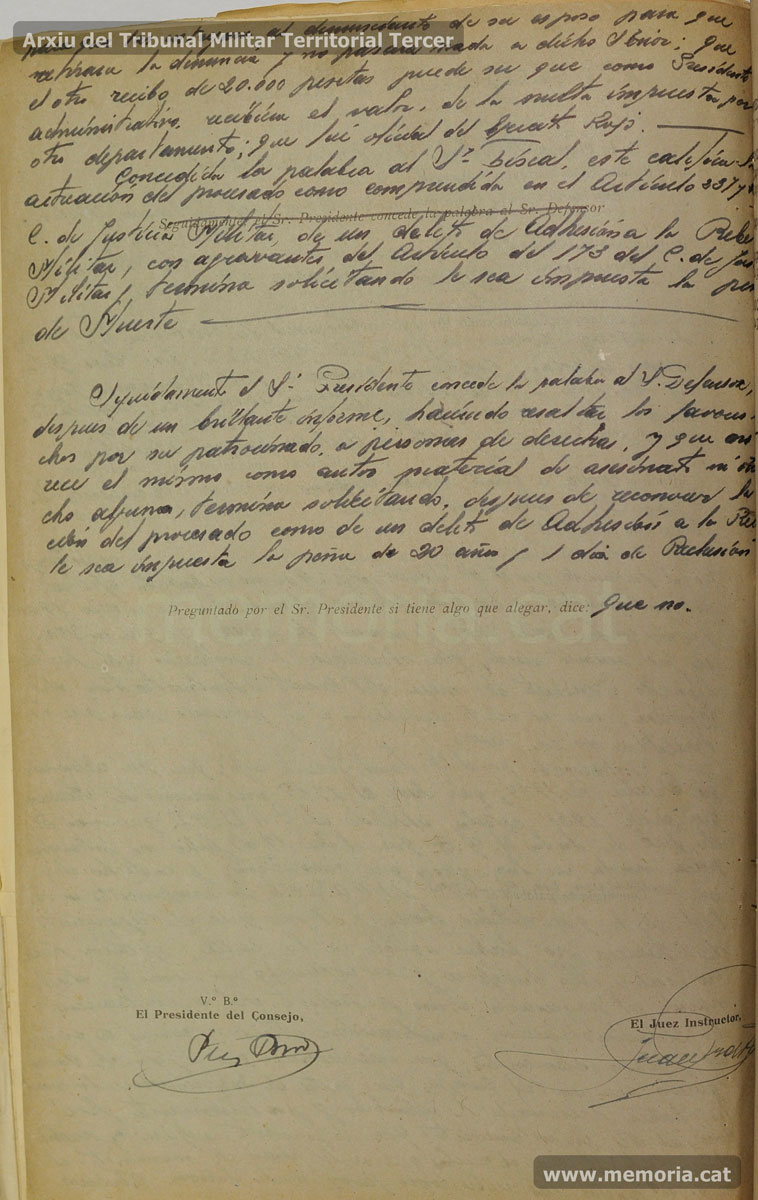 Arxiu del Tribunal Militar Territorial Tercer
denunciante de su esposo para que
retirara la denuncia y no pasara nada a dicho Señor; que
el otro recibo de 20.000 pesetas puede ser que como Presidente
administrativo, recibiera el valor, de la multa impuesta por
otro departamento; que fué oficial del Socorro Rojo.
Concedida la palabra al Sr. Fiscal, este califica la
actuación del procesado como comprendida en el Artículo 237 y
Seguidamente el Sr. Presidente concede la palabra al Sr. Defensor
C. de Justicia Militar, de un delito de Adhesión a la Rebe
Militar, con agravantes del Artículo del 173 del C. de Jus
Militar, termina solicitando le sea impuesta la pen
de Muerte
Seguidamente el Sr. Presidente concede la palabra al S. Defensor,
despues de un brillante informe, haciendo resaltar los favores
chos por su patrocinado, a personas de derecha, y que
rece el mismo como autor material de asesinato ni
cho alguno, termina solicitando, despues de reconocer la
ción del procesado como de un delito de Adhesión a la Re
le sea impuesta la peña de 20 años y 1 dia de Reclusión
Preguntado por el Sr. Presidente si tiene algo que alegar, dice: Que no.
V.º B.º
El Presidente del Consejo,
El Juez Instructor,
memoria.cat
www.memoria.cat